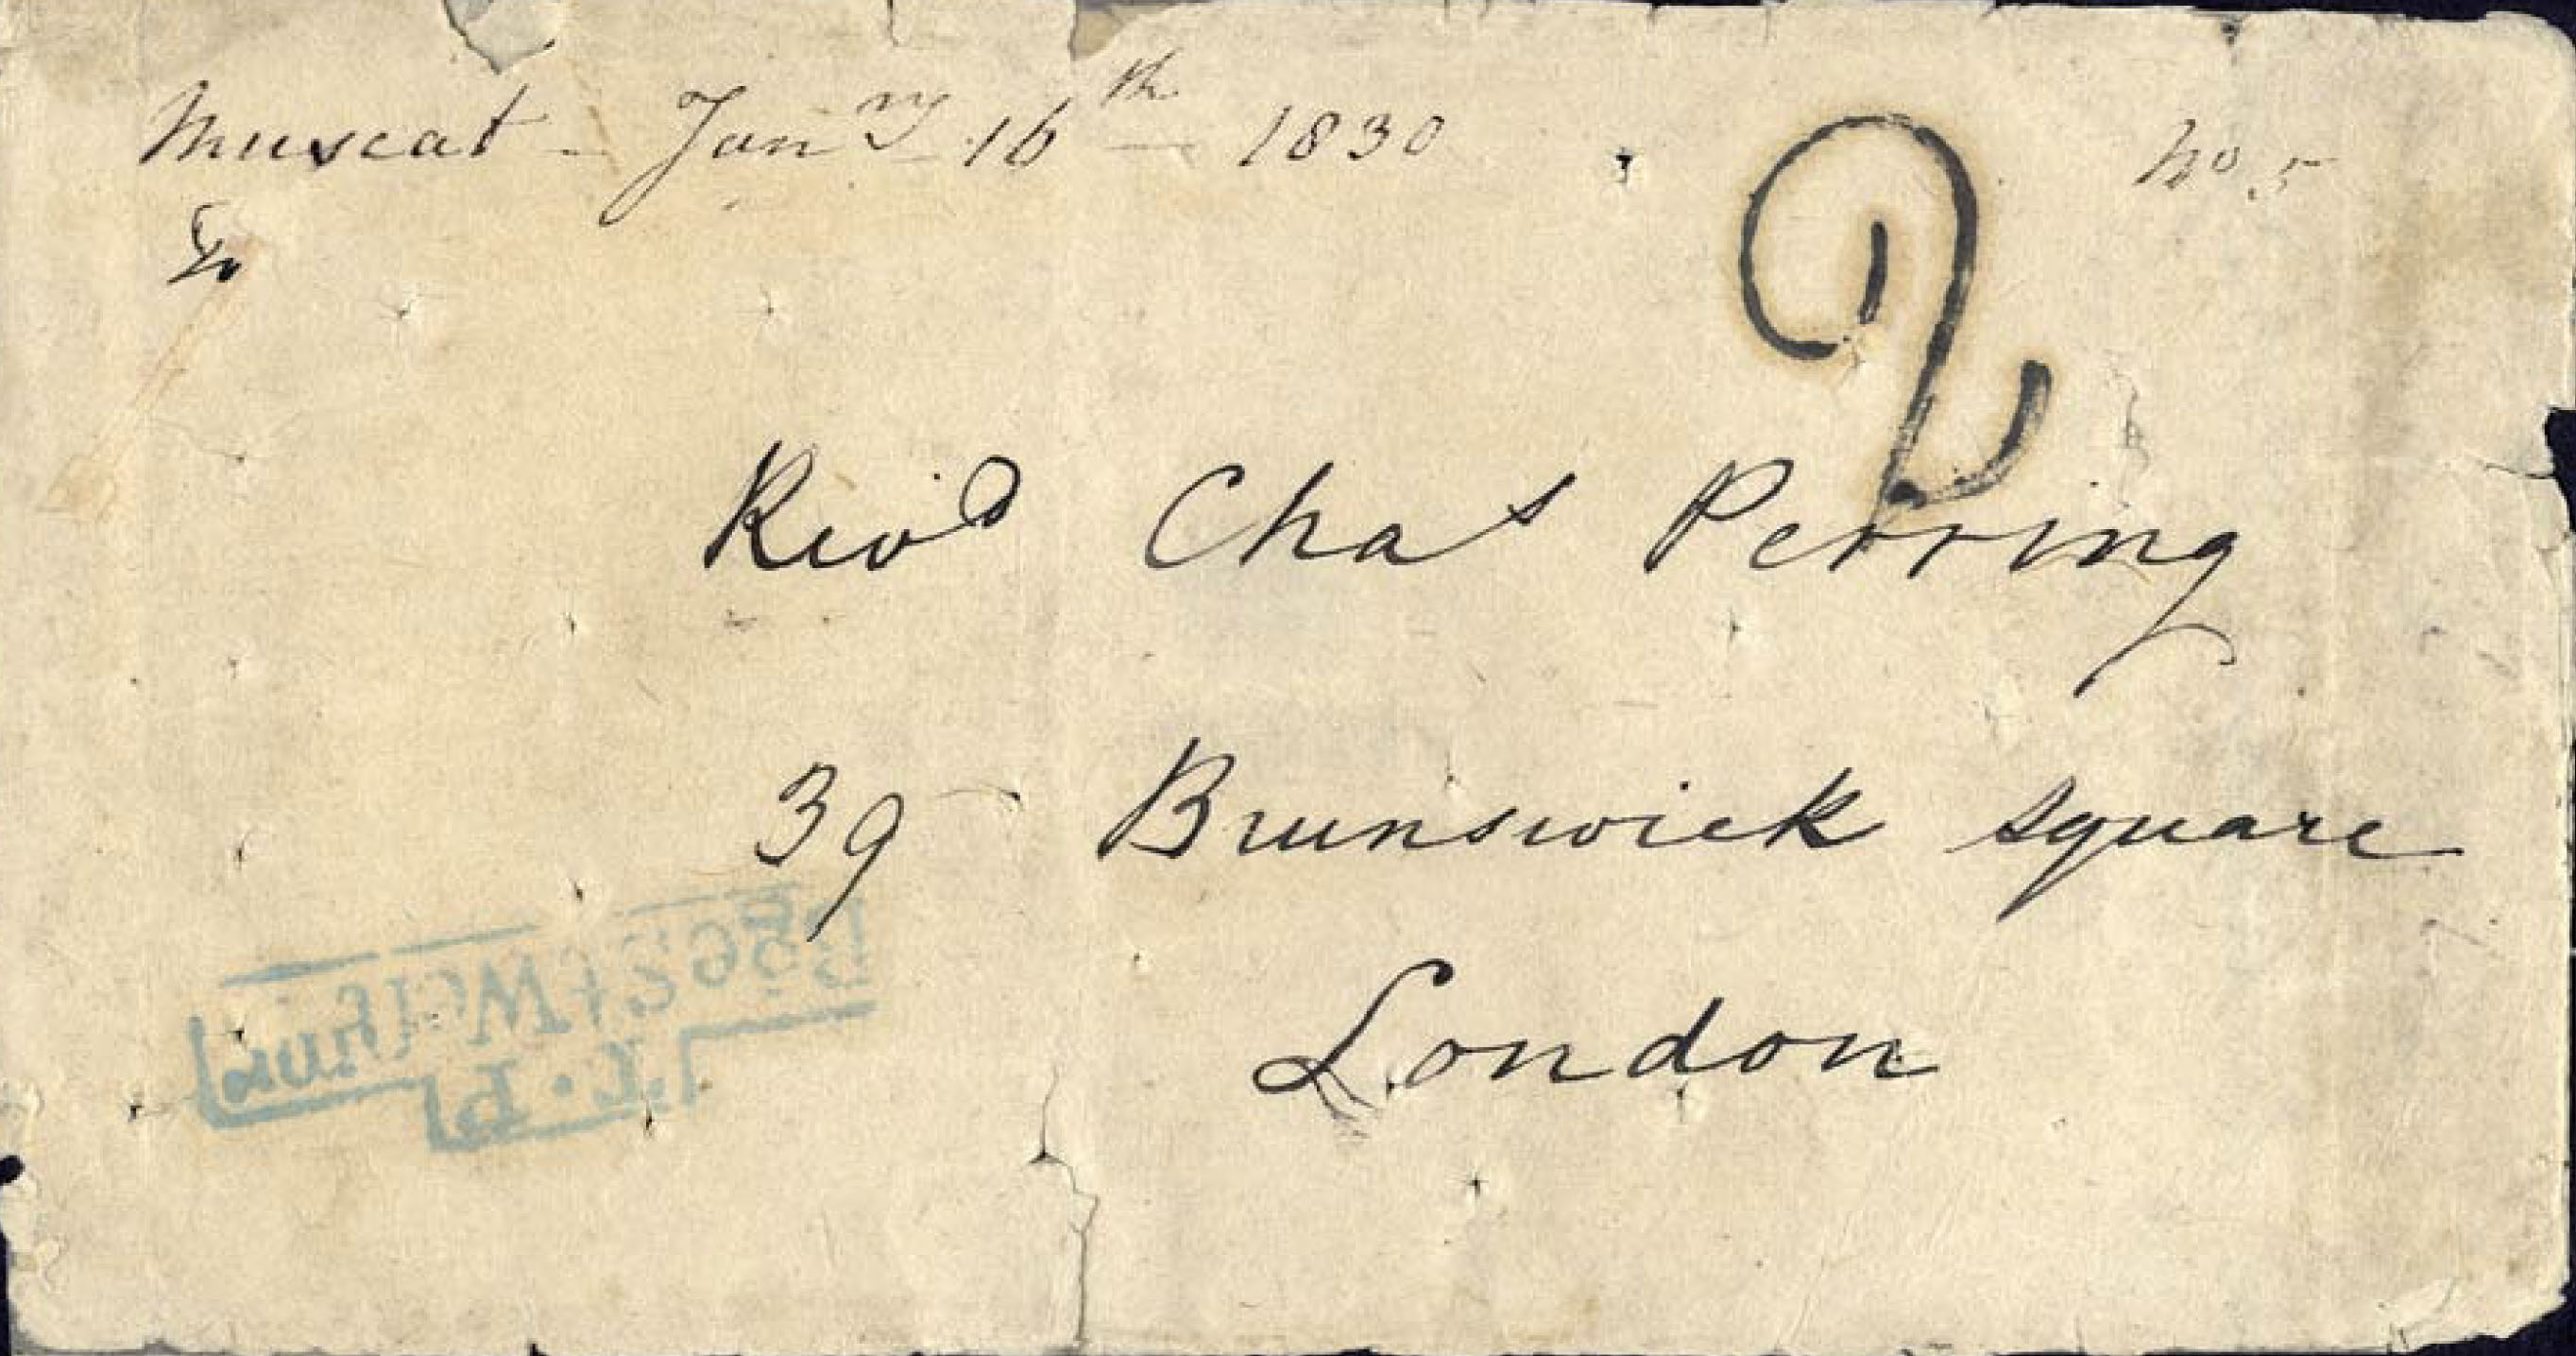 Muscat - Jan^ry 16^th - 1830 N^o 5
To
2
Rev^d Cha^s Perring
39 Brunswick square
London
T.P